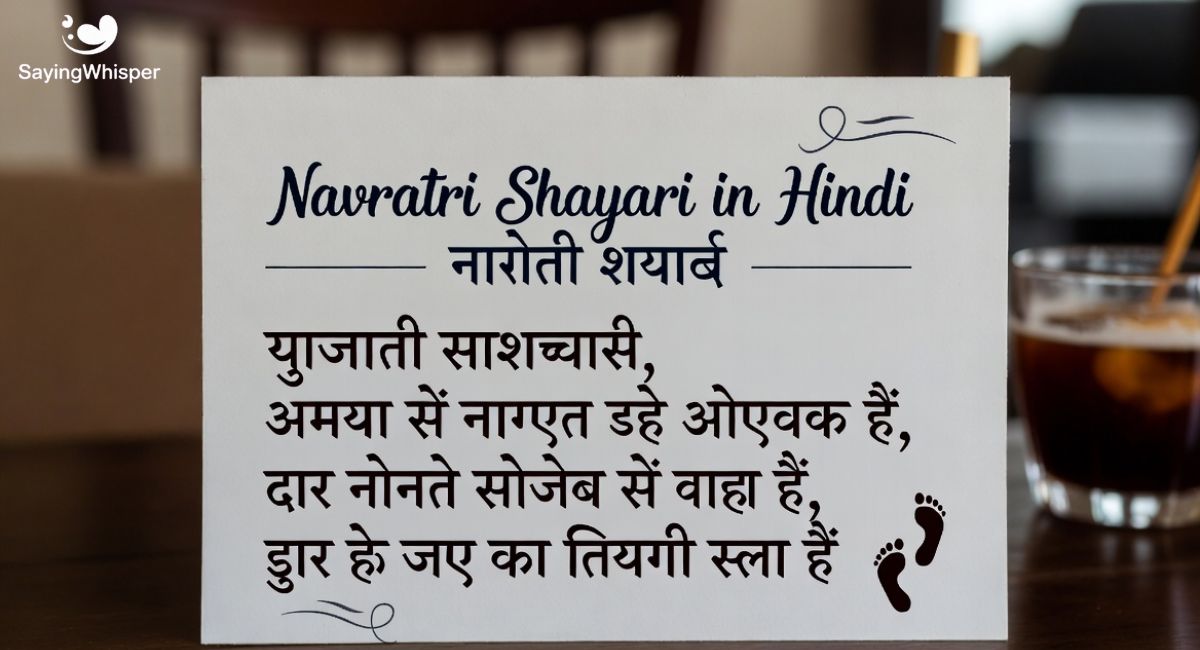 SayingWhisper
Navratri Shayari in Hindi
नारोती शयार्ब
युाजाती साशच्चासी,
अमया सें नाग्एत डहे ओएवक हैं,
दार नोनते सोजेब सें वाहा हैं,
डुार हेो जए का तियगी स्ला हैं